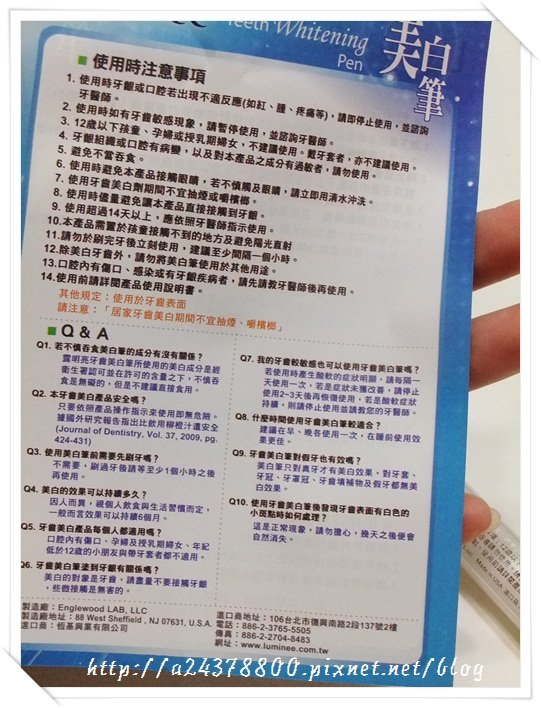 Teeth Whitening
Pen
美白筆
■ 使用時注意事項
1. 使用時牙齦或口腔若出現不適反應(如紅、腫、疼痛等)，請即停止使用，並諮詢
牙醫師。
2. 使用時如有牙齒敏感現象，請暫停使用，並諮詢牙醫師。
3. 12歲以下孩童、孕婦或授乳期婦女，不建議使用。戴牙套者，亦不建議使用。
4. 牙齦組織或口腔有病變，以及對本產品之成分有過敏者，請勿使用。
5. 避免不當吞食。
6. 使用時避免本產品接觸眼睛，若不慎觸及眼睛，請立即用清水沖洗。
7. 使用牙齒美白劑期間不宜抽煙或嚼檳榔。
8. 使用時儘量避免讓本產品直接接觸到牙齦。
9. 使用超過14天以上，應依照牙醫師指示使用。
10.本產品需置於孩童接觸不到的地方及避免陽光直射
11.請勿於刷完牙後立刻使用，建議至少間隔一個小時。
12.除美白牙齒外，請勿將美白筆使用於其他用途。
13.口腔內有傷口、感染或有牙齦疾病者，請先請教牙醫師後再使用。
14.使用前請詳閱產品使用說明書。
其他規定：使用於牙齒表面
請注意：「居家牙齒美白期間不宜抽煙、嚼檳榔」
■ Q & A
Q1. 若不慎吞食美白筆的成分有沒有關係？
露明亮牙齒美白筆所使用的美白成分是經
衛生署認可並在許可的含量之下，不慎吞
食是無礙的，但是不建議直接食用。
Q2. 本牙齒美白產品安全嗎？
只要依照產品操作指示來使用即無危險。
據國外研究報告指出比飲用柳橙汁還安全
(Journal of Dentistry, Vol. 37, 2009, pg-
424-431)
Q3. 使用美白筆前需要先刷牙嗎？
不需要，刷過牙後請等至少1個小時之後
再使用。
Q4. 美白的效果可以持續多久？
因人而異，視個人飲食與生活習慣而定，
一般而言效果可以持續6個月。
Q5. 牙齒美白產品每個人都適用嗎？
口腔內有傷口、孕婦及授乳期婦女、年紀
低於12歲的小朋友與帶牙套者都不適用。
Q6. 牙齒美白筆塗到牙齦有關係嗎？
美白的對象是牙齒，請盡量不要接觸牙齦，
些微接觸是無害的。
Q7. 我的牙齒較敏感也可以使用牙齒美白筆嗎？
若使用時產生酸軟的症狀明顯，請每隔一
天使用一次，若是症狀未獲改善，請停止
使用2~3天後再恢復使用，若是酸軟症狀
持續，則請停止使用並請教您的牙醫師。
Q8. 什麼時間使用牙齒美白筆較適合？
建議在早、晚各使用一次，在睡前使用效
果更佳。
Q9. 牙齒美白筆對假牙也有效嗎？
美白筆只對真牙才有美白效果，對牙套、
牙冠、牙罩冠、牙齒填補物及假牙都無美
白效果。
Q10. 使用牙齒美白筆後發現牙齒表面有白色的
小斑點時如何處理？
這是正常現象，請勿擔心，幾天之後便會
自然消失。
製造廠：Englewood LAB, LLC
製造廠地址：88 West Sheffield, NJ 07631, U.S.A.
進口商：恆基興業有限公司
進口商地址：106台北市復興南路2段137號2樓
電話：886-2-3765-5505
傳真：886-2-2704-8483
網址：www.luminee.com.tw
http://a24378800.pixnet.net/blog